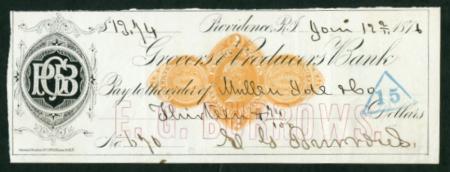 $13.74 Providence, R.I. Jan 12th 1876
Grocers & Producers Bank
Pay to the order of Mullen Ide & Co
Thirteen & 74/100 Dollars
15
E. G. BURROWS.
No. 670 E G Burrows.